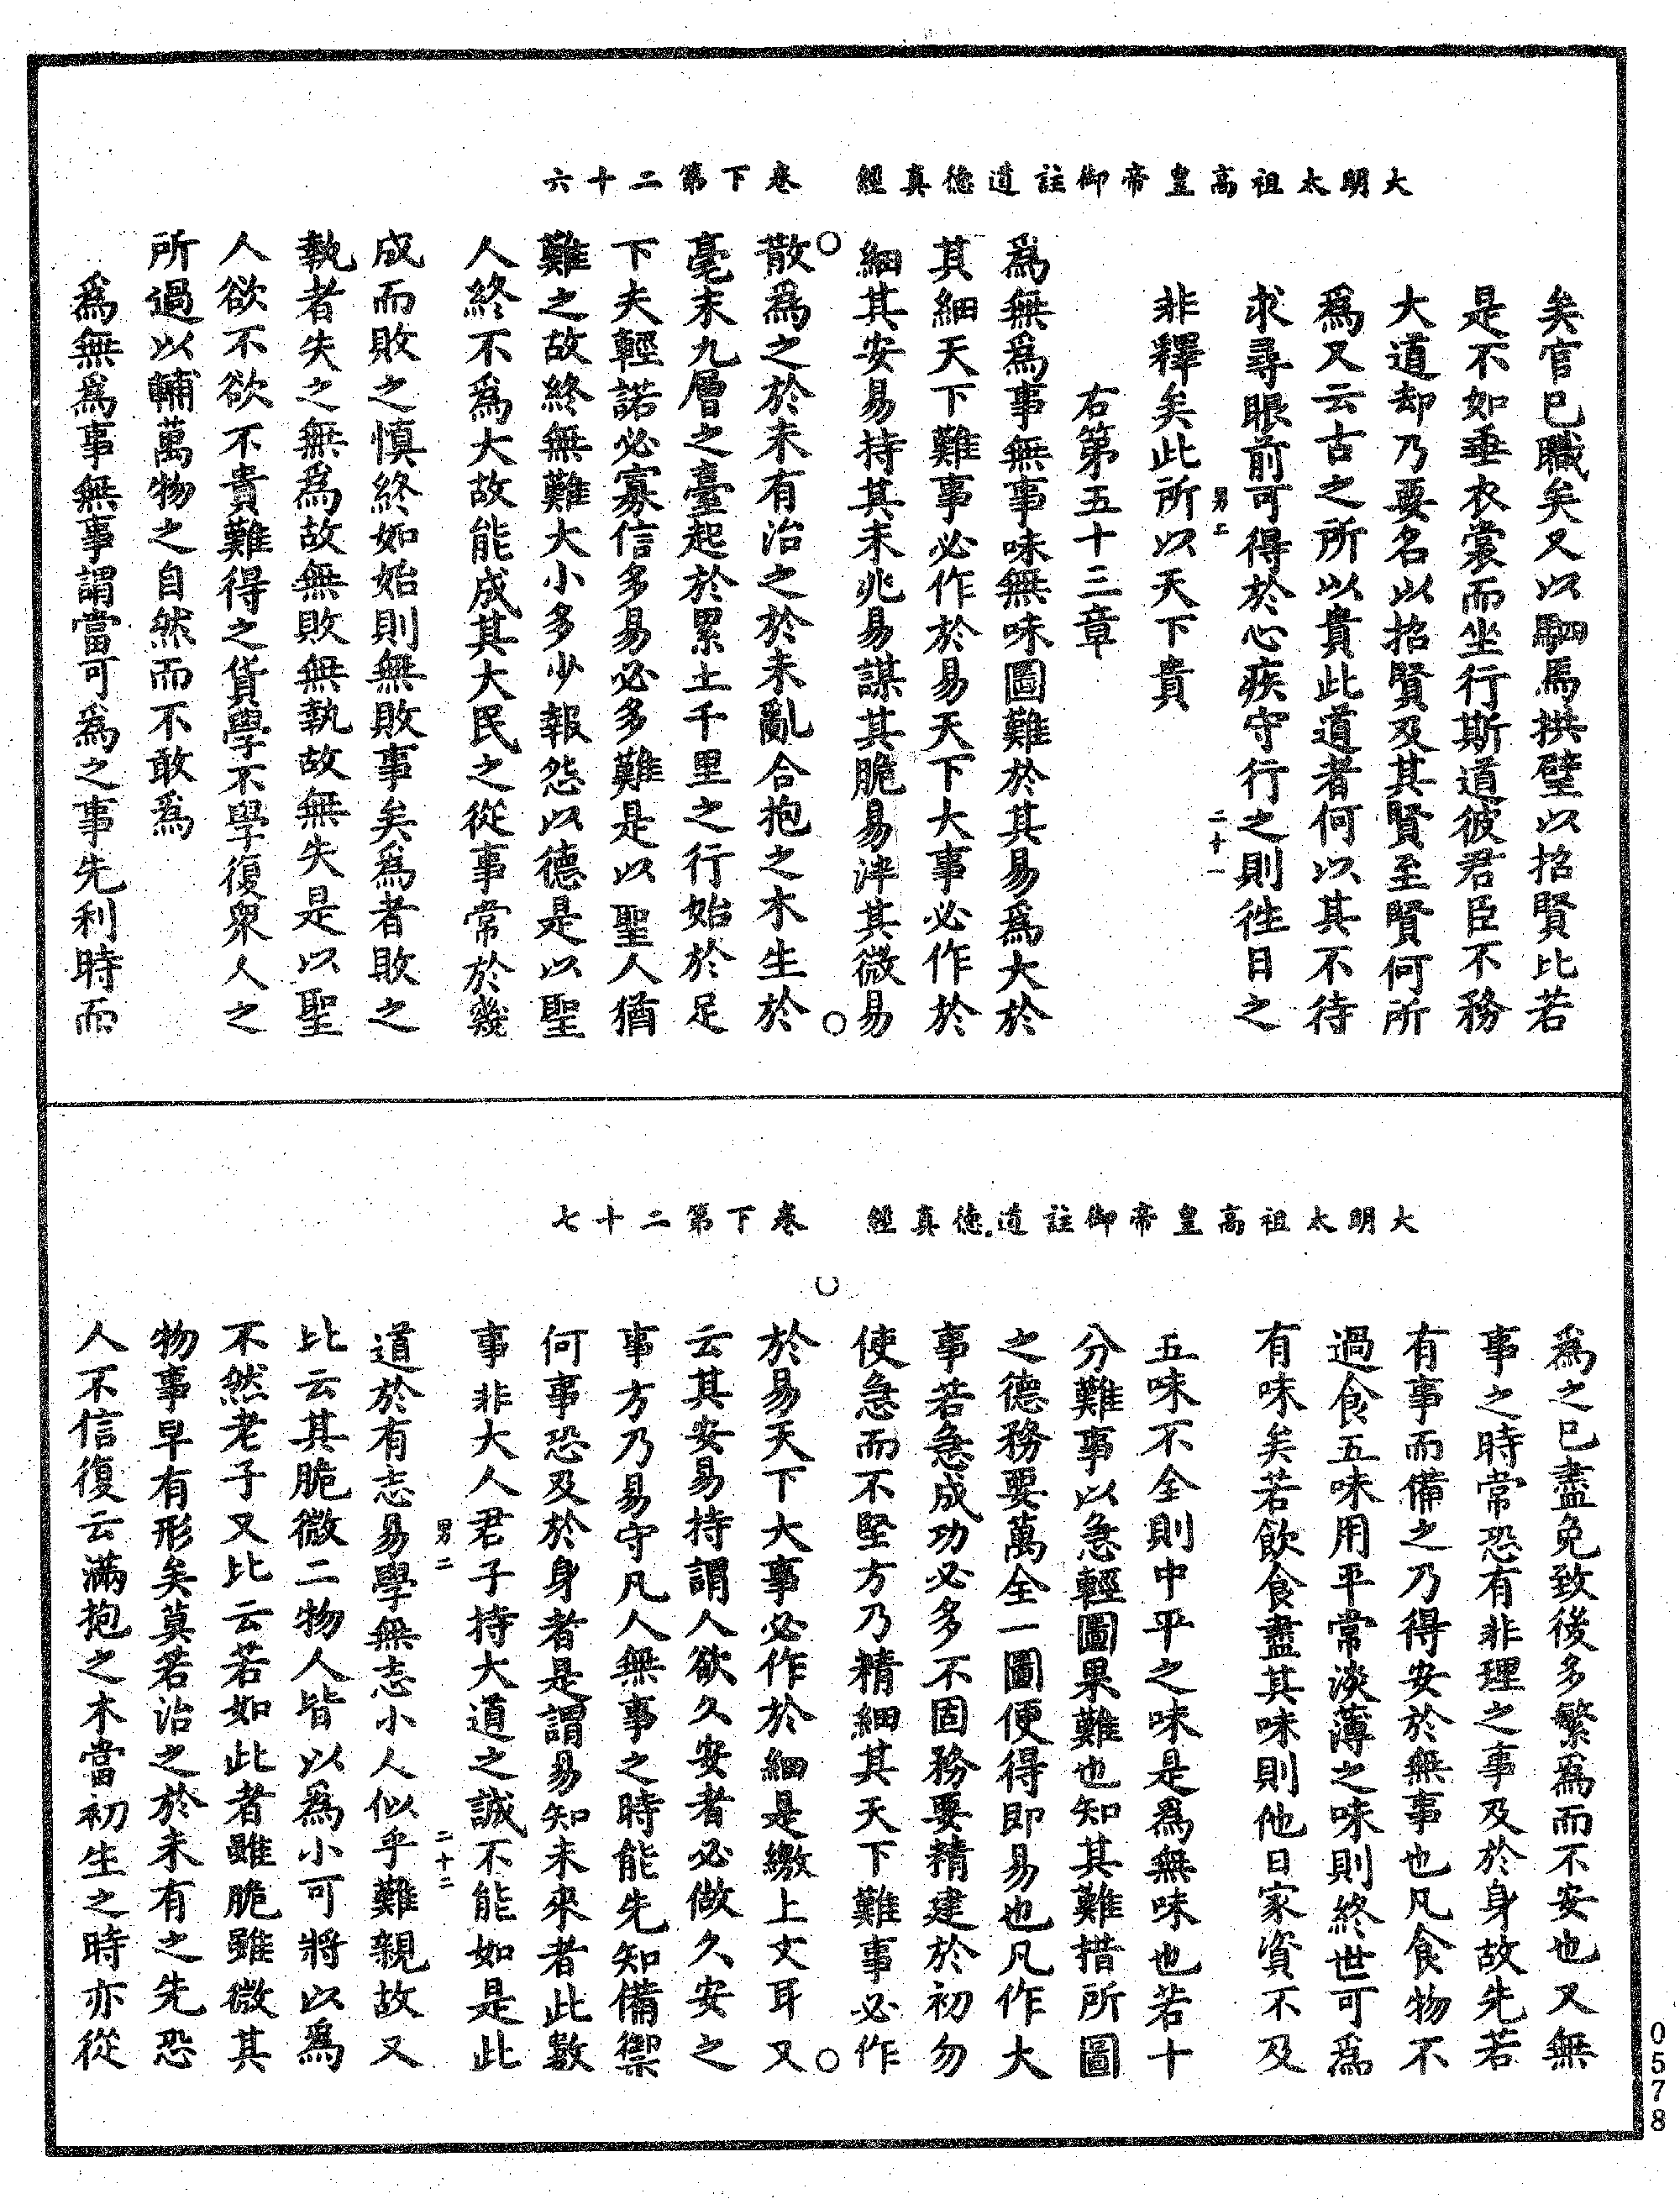 大明太祖高皇帝御註道德真經　卷下第二十六
矣官已職矣又以駟馬拱璧以招賢比若
是不如垂衣裳而坐行斯道彼君臣不務
大道却乃要名以招賢及其賢至賢何所
爲又云古之所以貴此道者何以其不待
求尋眼前可得於心疾守行之則徃日之
男二　二十一
非釋矣此所以天下貴
右第五十三章
爲無爲事無事味無味圖難於其易爲大於
其細天下難事必作於易天下大事必作於
細其安易持其未兆易謀其脆易泮其微易
散爲之於未有治之於未亂合抱之木生於
毫末九層之臺起於累土千里之行始於足
下夫輕諾必寡信多易必多難是以聖人猶
難之故終無難大小多少報怨以德是以聖
人終不爲大故能成其大民之從事常於幾
成而敗之慎終如始則無敗事矣爲者敗之
執者失之無爲故無敗無執故無失是以聖
人欲不欲不貴難得之貨學不學復衆人之
所過以輔萬物之自然而不敢爲
爲無爲事無事謂當可爲之事先利時而
大明太祖高皇帝御註道德真經　卷下第二十七
爲之已盡免致後多繁爲而不安也又無
事之時常恐有非理之事及於身故先若
有事而備之乃得安於無事也凡食物不
過食五味用平常淡薄之味則終世可爲
有味矣若飲食盡其味則他日家資不及
五味不全則中平之味是爲無味也若十
分難事以急輕圖果難也知其難措所圖
之德務要萬全一圖便得即易也凡作大
事若急成功必多不固務要精建於初勿
使急而不堅方乃精細其天下難事必作
於易天下大事必作於細是繳上文耳又
云其安易持謂人欲久安者必做久安之
事方乃易守凡人無事之時能先知備禦
何事恐及於身者是謂易知未來者此數
事非大人君子持大道之誠不能如是此
男二　二十二
道於有志易學無志小人似乎難親故又
比云其脆微二物人皆以爲小可將以爲
不然老子又比云若如此者雖脆雖微其
物事早有形矣莫若治之於未有之先恐
人不信復云滿抱之木當初生之時亦從
0578